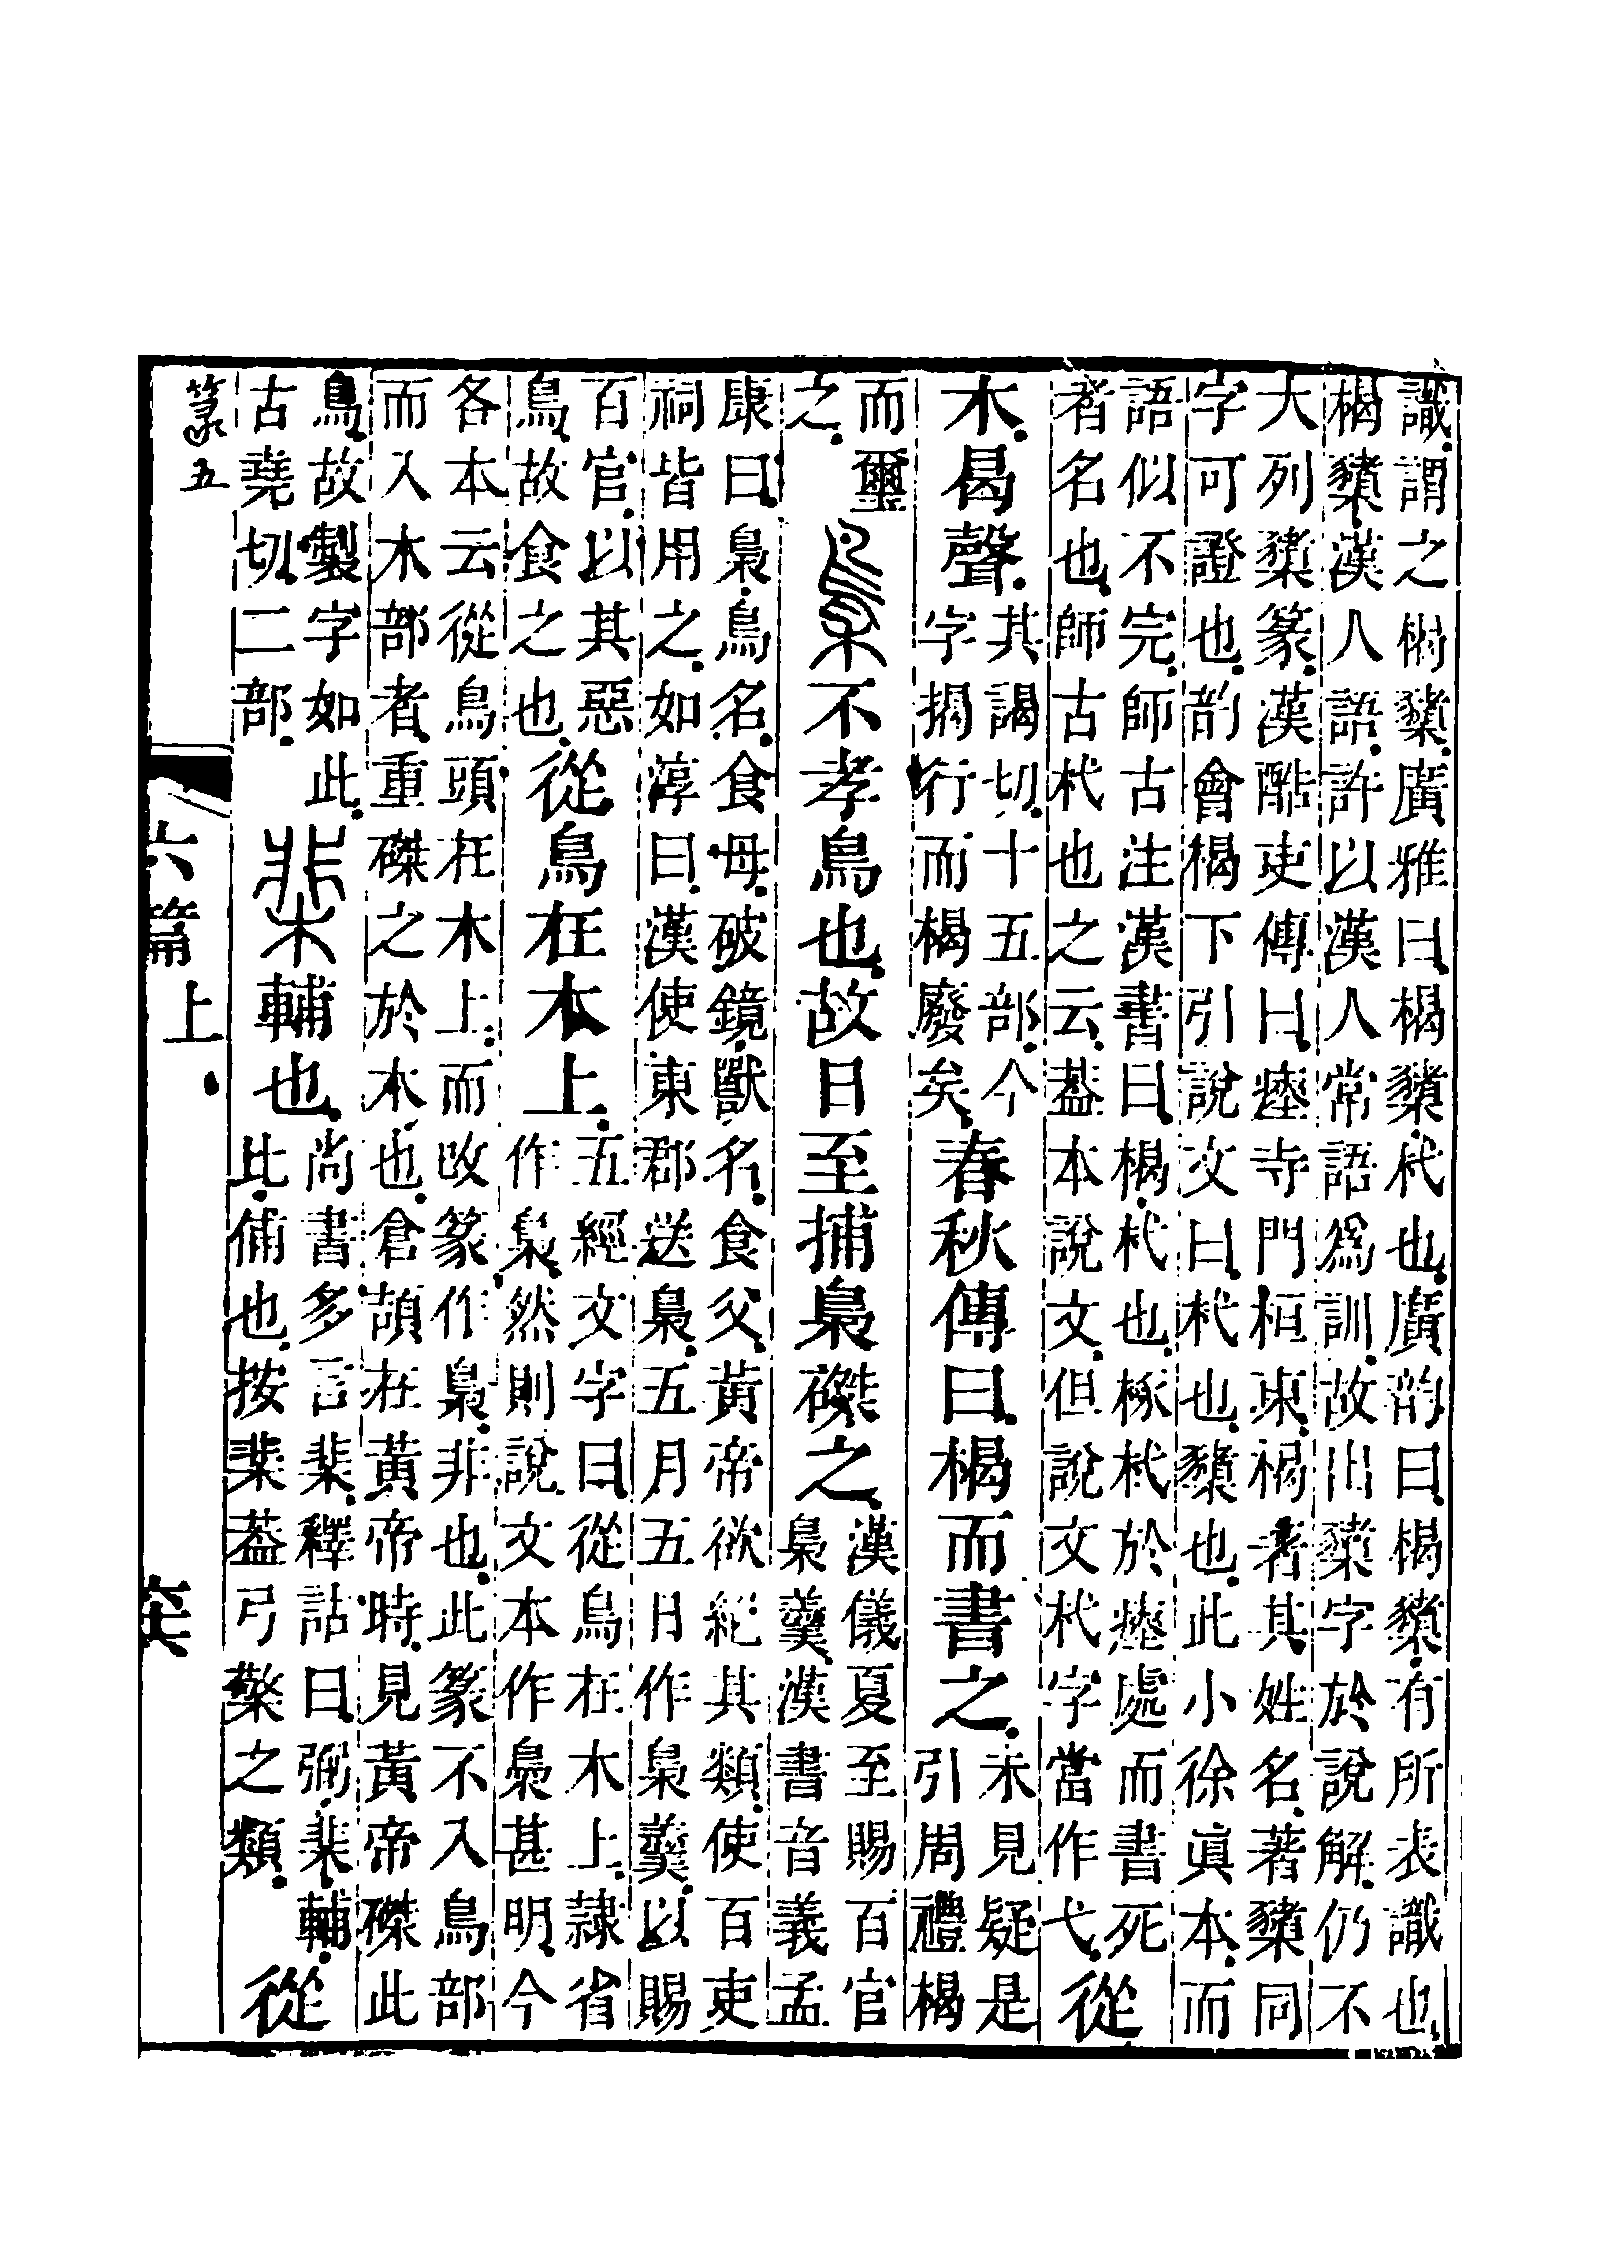 識。謂之楬櫫。廣雅曰。楬櫫杙也。廣韵曰。楬櫫。有所表識也。
楬櫫漢人語。許以漢人常語爲訓。故出櫫字於說解。仍不
大列櫫篆。漢酷吏傳曰。瘞寺門桓東。楬著其姓名。著櫫同
字可證也。韵會楬下引說文曰。杙也。櫫也。此小徐眞本。而
語似不完。師古注漢書曰。楬。杙也。椓杙於瘞處而書死
者名也。師古杙也之云。葢本說文。但說文杙字當作弋。
從
木。曷聲。
其謁切。十五部。今
字揭行而楬廢矣。
春秋傳曰。楬而書之。
未見疑是
引周禮楬
而璽
之。
梟不孝鳥也。故日至捕梟磔之。
漢儀夏至賜百官
梟羹。漢書音義孟
康曰。梟。鳥名。食母。破鏡。獸名。食父。黃帝欲絕其類。使百吏
祠皆用之。如淳曰。漢使東郡送梟。五月五日作梟羹。以賜
百官。以其惡
鳥。故食之也。
從鳥在木上。
五經文字曰從鳥在木上。隷省
作梟。然則說文本作梟甚明。今
各本云從鳥頭在木上。而改篆作梟。非也。此篆不入鳥部
而入木部者。重磔之於木也。倉頡在黃帝時。見黃帝磔此
鳥。故製字如此。
古堯切。二部。
棐輔也。
尚書多言棐。釋詁曰。弼。棐。輔。
比。俌也。按棐葢弓檠之類。
從
篆五
六篇上